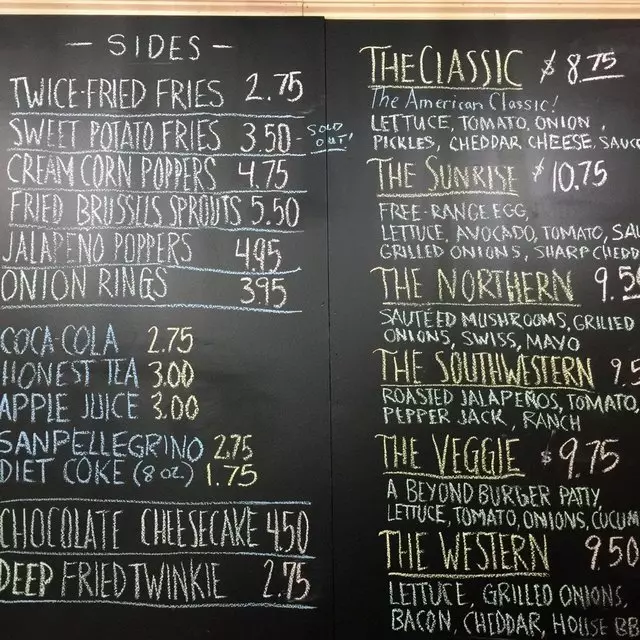 — SIDES —
TWICE-FRIED FRIES 2.75
SWEET POTATO FRIES 3.50 - SOLD OUT!
CREAM CORN POPPERS 4.75
FRIED BRUSSELS SPROUTS 5.50
JALAPEÑO POPPERS 4.95
ONION RINGS 3.95
COCA-COLA 2.75
HONEST TEA 3.00
APPLE JUICE 3.00
SANPELLEGRINO 2.75
DIET COKE (8 OZ) 1.75
CHOCOLATE CHEESECAKE 4.50
DEEP FRIED TWINKIE 2.75
THE CLASSIC $8.75
The American Classic!
LETTUCE, TOMATO, ONION,
PICKLES, CHEDDAR CHEESE, SAUC
THE SUNRISE $10.75
FREE-RANGE EGG,
LETTUCE, AVOCADO, TOMATO, SAU
GRILLED ONIONS, SHARP CHEDD
THE NORTHERN 9.50
SAUTÉED MUSHROOMS, GRILLED
ONIONS, SWISS, MAYO
THE SOUTHWESTERN 9.5
ROASTED JALAPEÑOS, TOMATO,
PEPPER JACK, RANCH
THE VEGGIE $9.75
A BEYOND BURGER PATTY,
LETTUCE, TOMATO, ONIONS, CUCUM
THE WESTERN 9.50
LETTUCE, GRILLED ONIONS,
BACON, CHEDDAR, HOUSE BB